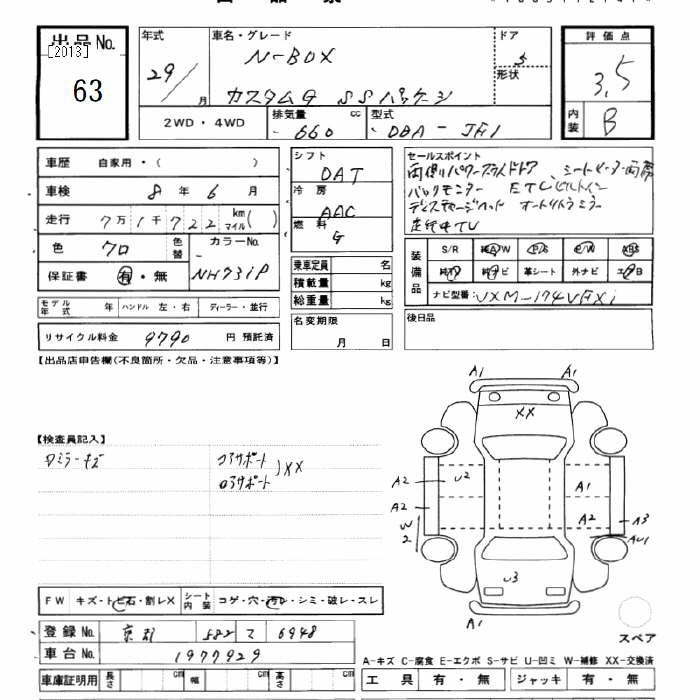 出品No.
[2013]
63
年式
29/
月
車名・グレード
N-BOX
カスタムG SSパッケージ
ドア
5
形状
評価点
3.5
内装
B
2WD・4WD
排気量
660
cc
型式
DBA - JF1
車歴 自家用・( )
車検 8年 6月
走行 7万1千722 km マイル( )
色 クロ
色替
カラーNo.
NH731P
保証書 有・無
モデル年式 年
ハンドル 左・右
ディーラー・並行
リサイクル料金 9790 円 預託済
シフト
DAT
冷房
AAC
燃料
G
乗車定員 名
積載量 kg
総重量 kg
名変期限
月 日
セールスポイント
両側パワースライドドア、シートヒーター両席
バックモニター ETCビルトイン
ディスチャージヘッド オートリトラミラー
走行中TV
装備品
S/R 純A/W P/S P/W ABS
純TV 純ナビ 革シート 外ナビ エアB
ナビ型番 VXM-174VFXi
後日品
【出品店申告欄(不良箇所・欠品・注意事項等)】
【検査員記入】
ロミラーキズ
コアサポート
ロアサポート
XX
A1 A1
XX
A2 U2 A1
A2 A2 A3
W2 AU1
U3
A1
スペア
FW キズ・トビ石・割レX
シート内装 コゲ・穴・汚レ・シミ・破レ・スレ
登録No. 京都 582 マ 6948
車台No. 1977929
車庫証明用 長さ cm 幅 cm 高さ cm
A-キズ C-腐食 E-エクボ S-サビ U-凹ミ W-補修 XX-交換済
工具 有・無 ジャッキ 有・無